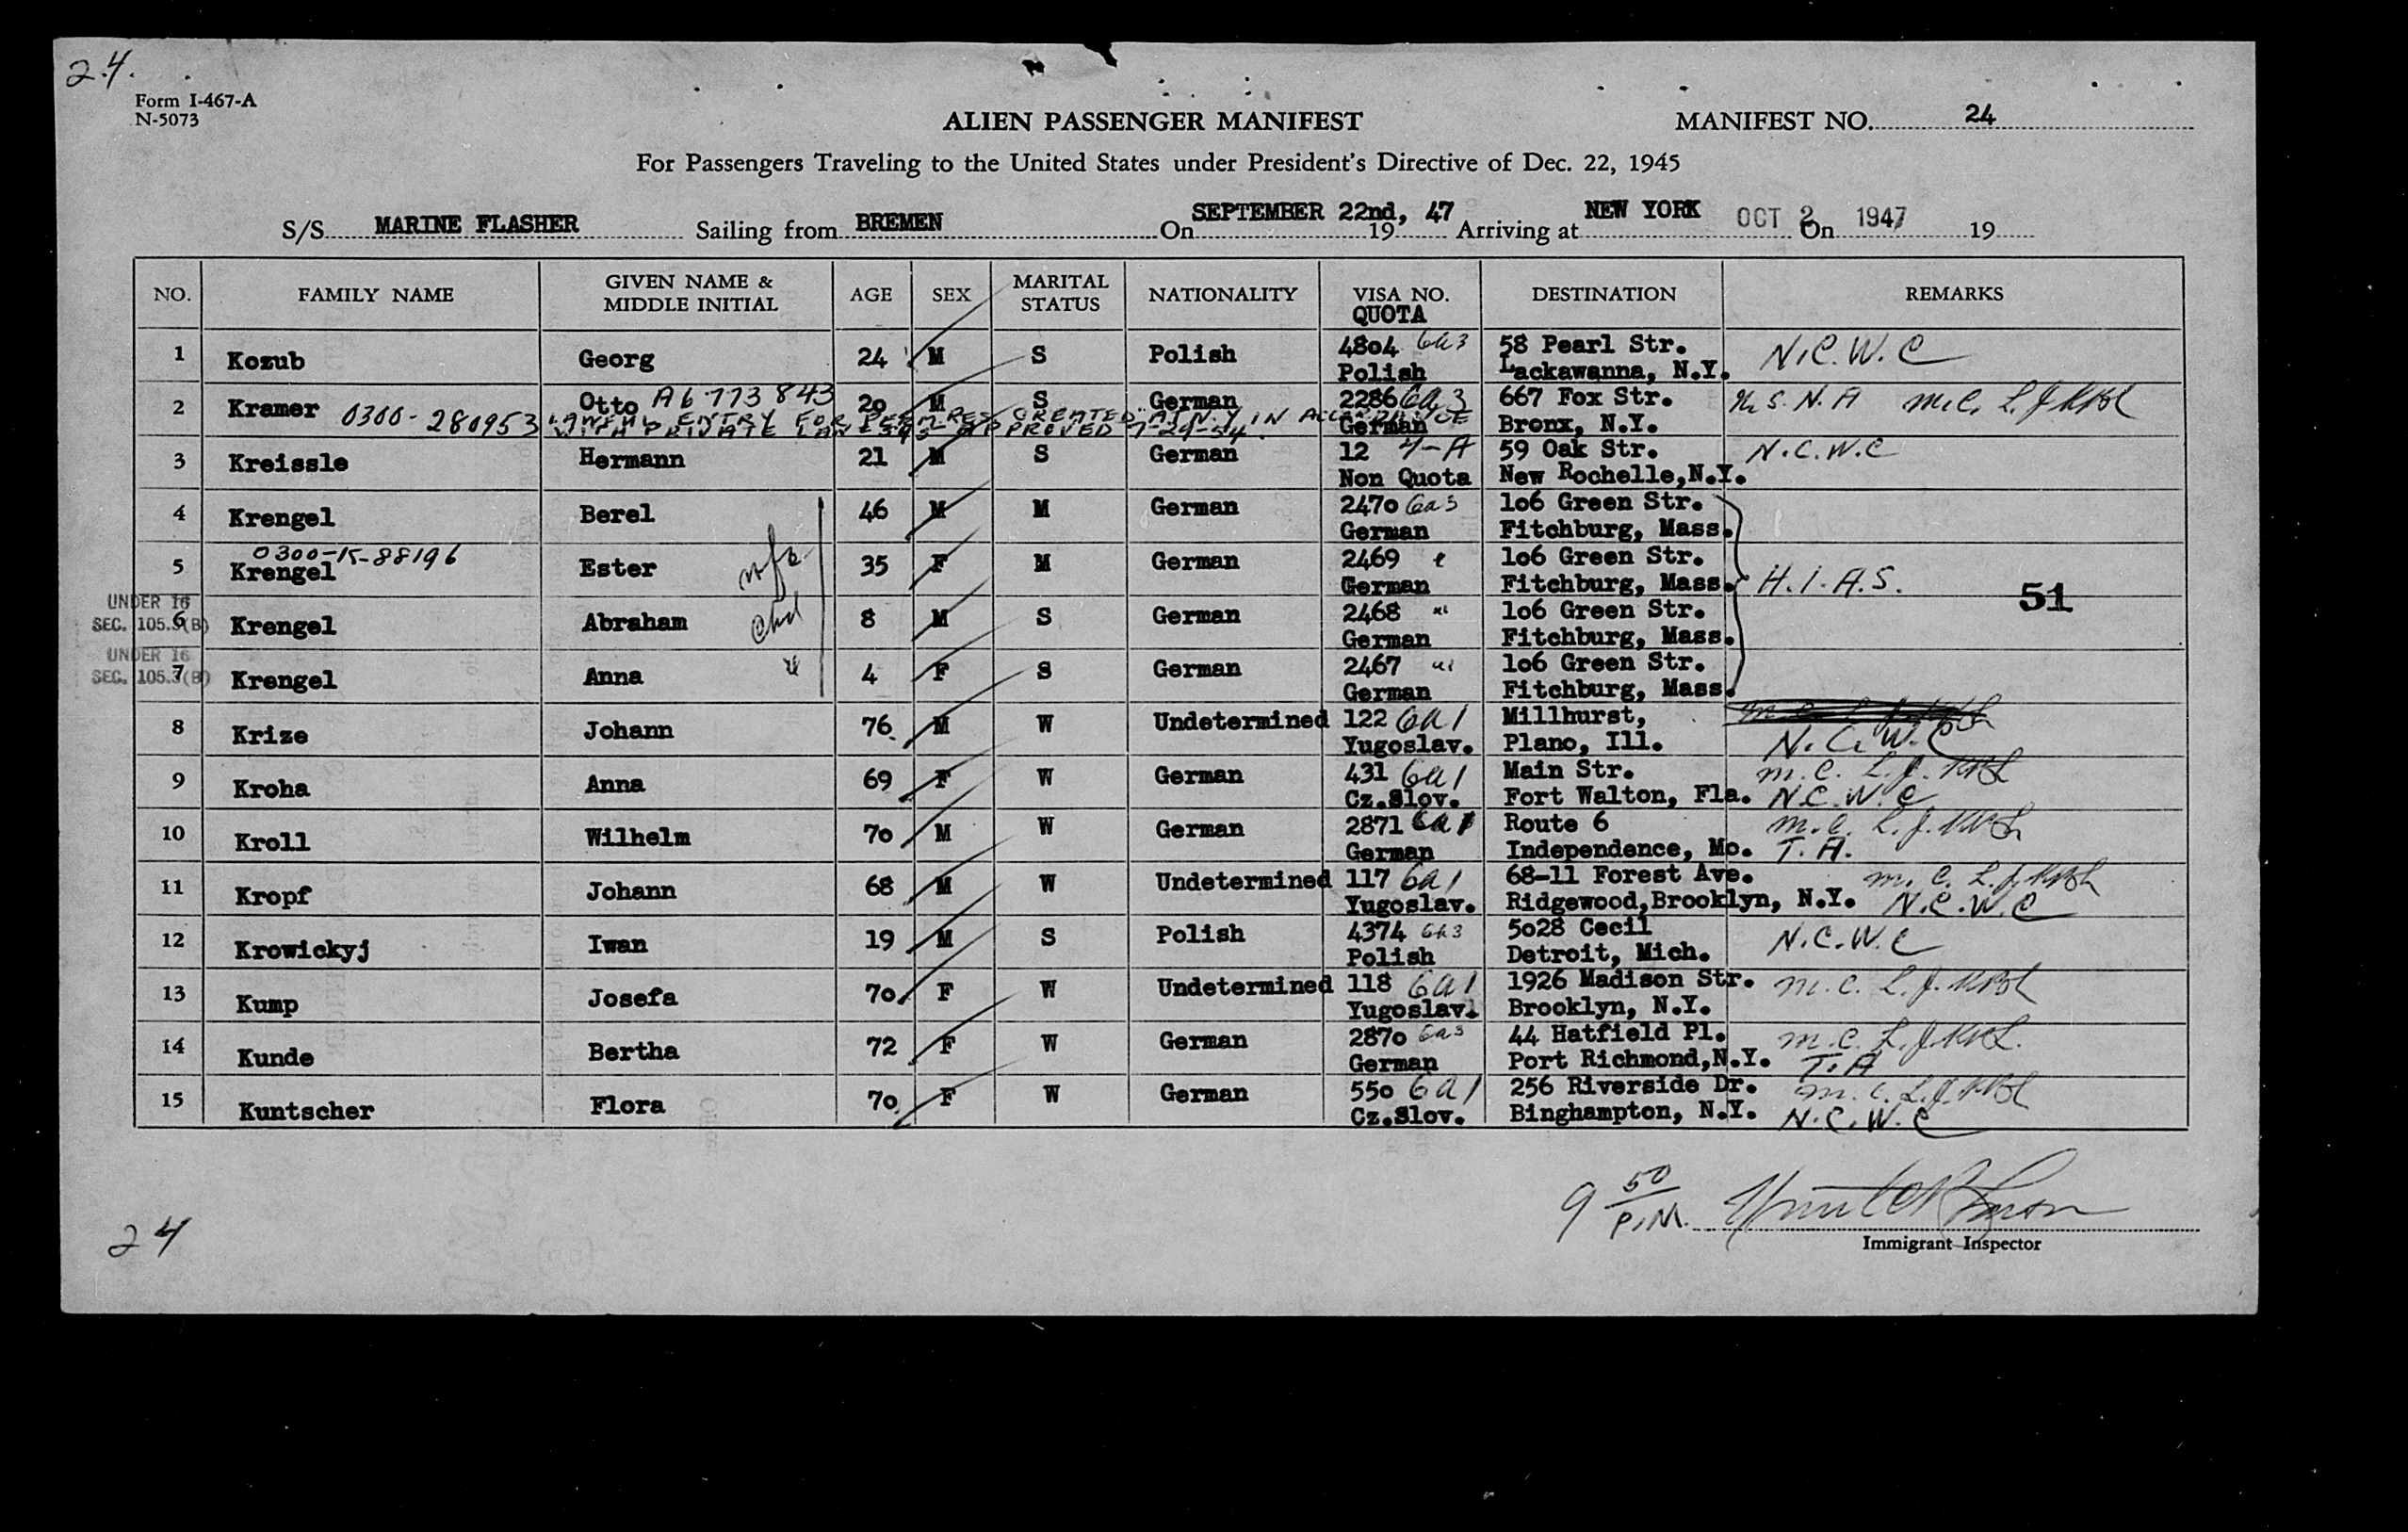 24.
Form I-467-A
N-5073
ALIEN PASSENGER MANIFEST
MANIFEST NO. 24
For Passengers Traveling to the United States under President's Directive of Dec. 22, 1945
S/S MARINE FLASHER Sailing from BREMEN On SEPTEMBER 22nd, 19 47 Arriving at NEW YORK OCT 2 On 1947 19
NO. FAMILY NAME GIVEN NAME & MIDDLE INITIAL AGE SEX MARITAL STATUS NATIONALITY VISA NO. QUOTA DESTINATION REMARKS
1 Kozub Georg 24 M S Polish 4804 6a3 58 Pearl Str. N.C.W.C
Polish Lackawanna, N.Y.
2 Kramer Otto A6 773 843 20 M S German 2286 6a3 667 Fox Str. N.A M.C. L.J.
0300-280953 LAWFUL ENTRY FOR PERM RES CREATED AT N.Y IN ACCORDANCE
WITH PRIVATE LAW APPROVED 7-29-54.
German Bronx, N.Y.
3 Kreissle Hermann 21 M S German 12 4-A 59 Oak Str. N.C.W.C
Non Quota New Rochelle,N.Y.
4 Krengel Berel 46 M M German 2470 6a3 106 Green Str.
German Fitchburg, Mass.
0300-K-88196
5 Krengel Ester wfe 35 F M German 2469 " 106 Green Str.
German Fitchburg, Mass. H.I.A.S. 51
UNDER 16
SEC. 105.3(B)
6 Krengel Abraham chd 8 M S German 2468 " 106 Green Str.
German Fitchburg, Mass.
UNDER 16
SEC. 105.3(B)
7 Krengel Anna " 4 F S German 2467 " 106 Green Str.
German Fitchburg, Mass.
8 Krize Johann 76 M W Undetermined 122 6a1 Millhurst,
Yugoslav. Plano, Ill. N.C.W.C
9 Kroha Anna 69 F W German 431 6a1 Main Str. m.c. L.J.
Cz.Slov. Fort Walton, Fla. N.C.W.C
10 Kroll Wilhelm 70 M W German 2871 6a1 Route 6 m.c. L.J.
German Independence, Mo. T.A.
11 Kropf Johann 68 M W Undetermined 117 6a1 68-11 Forest Ave. m.c. L.J.
Yugoslav. Ridgewood,Brooklyn, N.Y. N.C.W.C
12 Krowickyj Iwan 19 M S Polish 4374 6a3 5028 Cecil N.C.W.C
Polish Detroit, Mich.
13 Kump Josefa 70 F W Undetermined 118 6a1 1926 Madison Str. m.c. L.J.
Yugoslav. Brooklyn, N.Y.
14 Kunde Bertha 72 F W German 2870 6a3 44 Hatfield Pl. m.c. L.J.
German Port Richmond,N.Y. T.A
15 Kuntscher Flora 70 F W German 550 6a1 256 Riverside Dr. m.c. L.J.
Cz.Slov. Binghampton, N.Y. N.C.W.C
9 50 P.M.
Immigrant Inspector
24